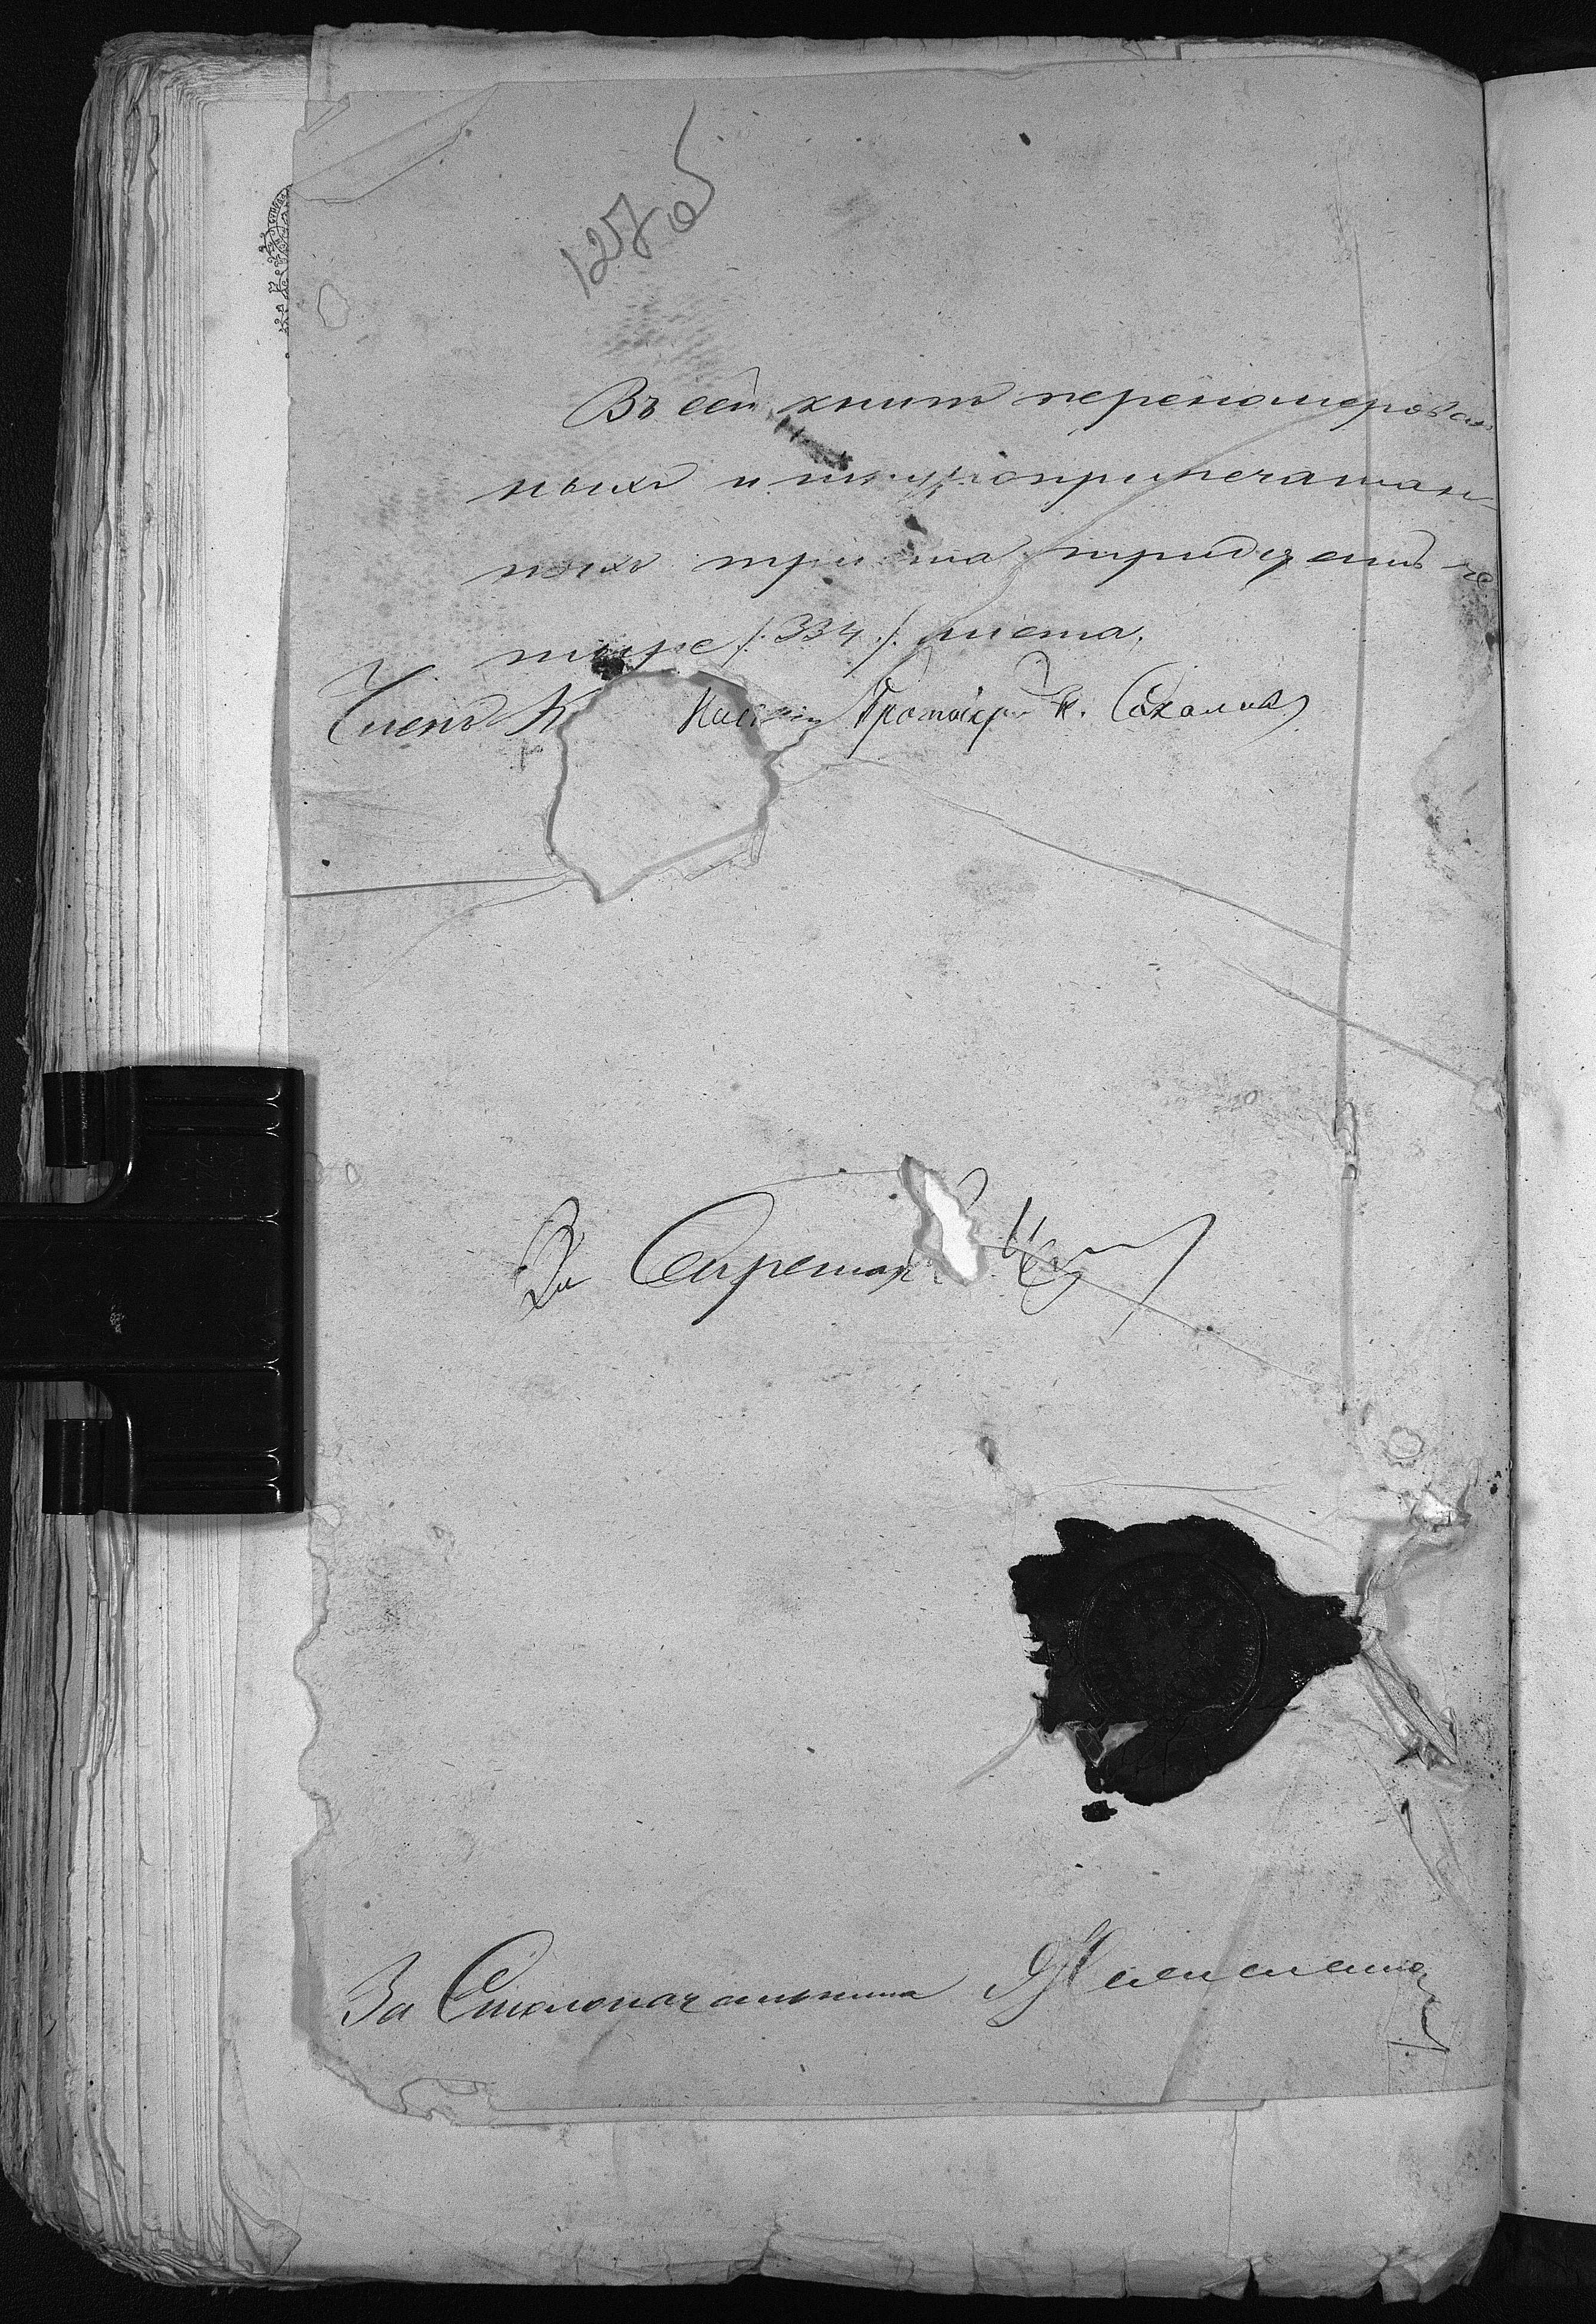 127об
Въ сей книгѣ перенумерован
ныхъ и шнуроприпечатан-
ныхъ триста тридцать че
тыре /:334:/ листа.
Членъ К Протоіерей Н. Соколовъ
За Секретар
За Столоначальника